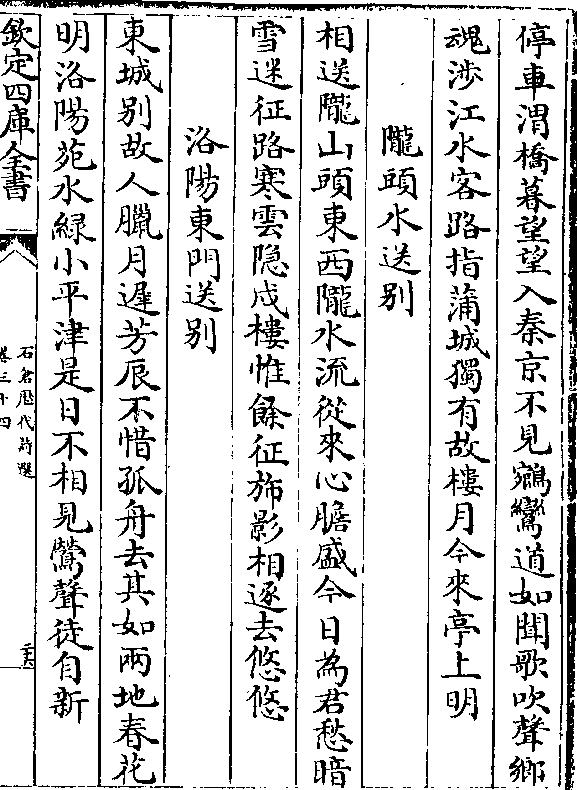 停車渭橋暮望望入秦京不見鵷鸞道如聞歌吹聲鄉
魂涉江水客路指蒲城獨有故樓月今來亭上明
隴頭水送别
相送隴山頭東西隴水流從來心膽盛今日為君愁暗
雪迷征路寒雲隐戍樓惟餘征斾影相逐去悠悠
洛陽東門送别
東城别故人臘月遲芳辰不惜孤舟去其如兩地春花
明洛陽苑水緑小平津是日不相見鶯聲徒自新
欽定四庫全書
石倉歷代詩選
卷三十四
二十六